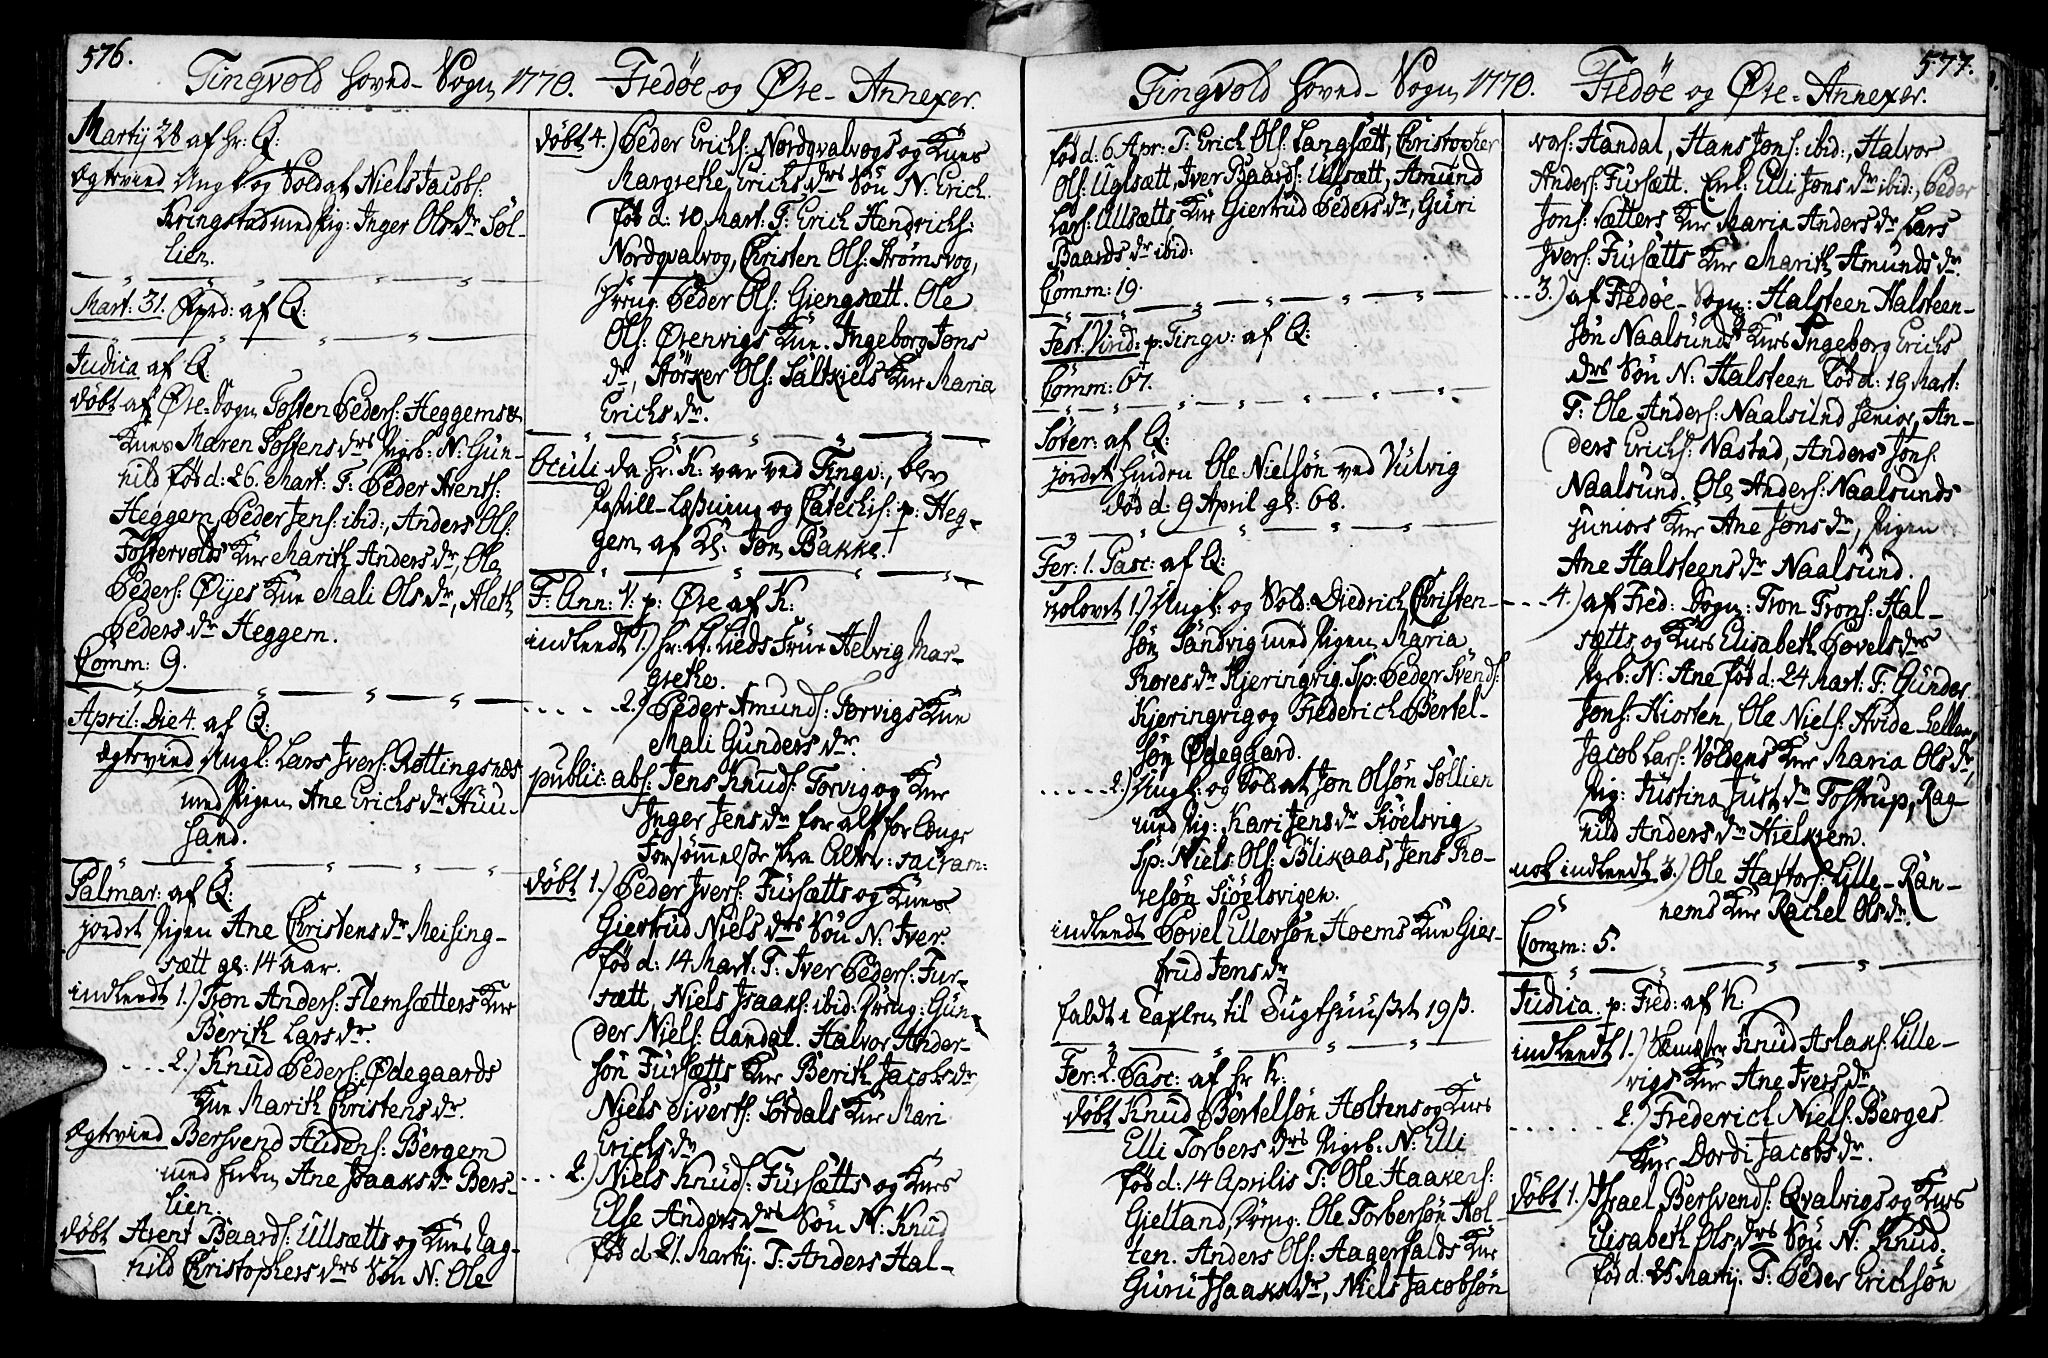 576.
Tingvold Hoved-Sogn 1770.
Martij 28 af Hr: Q:
Ægtevied Ungk: og Soldat Niels Jacobs:
Kringstad med Pig: Inger Ols dr Søl-
lien.
Mart: 31. Pred: af Q:
Judica af Q.
døbt af Øre-Sogn Tosten Peders: Heggems &
Kues Maren Tostens drs Pigeb: N: Gun-
nild fød d: 26. Mart: T: Peder Arents:
Heggem, Peder Jens: ibid:, Anders Ols:
Tostervolds Kue Marith Anders dr, Ole
Peders: Øijes Kue Mali Ols dr, Aleth
Peders dr Heggem.
Comm: 9.
April: Die 4. af Q:
Ægtevied Ungk: Lars Ivers: Rottingsnæs
med Pigen Ane Erichs dr Huu-
sand.
Palmar: af Q:
jordet Pigen Ane Christens dr Meising-
sætt gl: 14 Aar.
indleedt 1.) Tron Anders: Flemsætters Kue
Berith Lars dr.
2.) Knud Peders: Ødegaards
Kue Marith Christens dr.
Ægtevied Bersvend Audens: Bergem
med Enken Ane Isaaks dr Bers-
lien.
døbt Arent Baards: Ullsætts og Kues Rag-
nild Christophers drs Søn N: Ole
Fredøe og Øre-Annexer.
døbt 4.) Peder Erichs: Nordqvalvogs og Kues
Margrethe Erichs drs Søn N. Erich.
fød d: 10 Mart: T: Erich Hendrichs:
Nordqvalvog, Christen Ols: Strømsvog,
Dreng: Peder Ols: Giengsætt. Ole
Ols: Ørenvigs Kue. Ingeborg Jons
dr, Størker Ols: Saltkiels Kue Maria
Erichs dr.
Oculi da Hr: K: var ved Tingv:, blev
Postill-Læsning og Catechis: p: Heg-
gem af Kl: Jon Bakke.
F. Ann: V: p: Øre af K:
indleedt 1.) Hr: Lt. Lieds Frue Helvig Mar-
grethe.
2.) Peder Amunds: Torvigs Kue
Mali Gunders dr.
public: abs: Jens Knuds: Torvig og Kue
Inger Jens dr for alt for længe
Forsømmelse fra Alter: sacram:
døbt 1.) Peder Ivers: Fursætts og Kues
Giertrud Niels drs Søn N: Iver.
fød d: 14 Mart: T: Iver Peders: Fur-
sætt, Niels Isaaks: ibid: Dreng: Gun-
der Niels: Aandal. Halvor Ander-
søn Fursætts Kue Berith Jacobs dr
Niels Siverts: Sørdals Kue Mari
Erichs dr
2.) Niels Knuds: Fursætts og Kues
Else Anders drs Søn N: Knud
fød d 21. Martij. T: Anders Hal-
577.
Tingvold Hoved-Sogn 1770.
fød d. 6 Apr: T: Erich Ols: Langsætt, Christopher
Ols: Uglsætt, Iver Baards: Ullsætt, Amund
Lars: Ullsætts Kue Giertrud Peders dr, Guri
Baards dr ibid:
Comm: 19.
Fest: Virid: p: Tingv: af Q:
Comm: 67.
Soter: af Q:
jordet Huuden Ole Nielsøn ved Vulvig
død d: 9 April gl: 68.
Fer: 1. Pasc: af Q:
trolovet 1.) Ungk: og Sold: Diedrich Christen-
søn Sandvig med Pigen Maria
Tores dr Kjeringvig. Sp: Peder Svends:
Kjeringvig og Frederich Bertel-
søn Ødegaard.
2.) Ungk: og Soldat Jon Olsøn Søllien
med Pig: Kari Jens dr Siøelsvig
Sp: Niels Ols: Blikaas, Jens To-
resøn Siøelsvigen.
indleedt Povel Ellersøn Hoems Kue Gier-
trud Jens dr
faldt i Taflen til Tugthuuset 19 ß.
Fer: 2. Pasc: af Hr K:
døbt Knud Bertelsøn Holtens og Kues
Elli Torbers drs Pigeb: N: Elli
fød d: 14 Aprilis T: Ole Haakens:
Gielland, Dreng: Ole Torbersøn Hol-
ten. Anders Ols: Aagersalds Kue
Guru Isaaks dr, Niels Jacobsøn
Fredøe og Øre-Annexer.
vors: Aandal, Hans Jons: ibid:, Halvor
Anders: Fursætt. Enl: Elli Jons dr ibid:, Peder
Jons: Sætters Kue Maria Anders dr, Lars
Ivers: Fursætts Kue Marith Amunds dr.
3.) af Fredøe-Sogn: Halsteen Halsteen-
søn Naalsunds Kues Ingeborg Erichs
drs Søn N: Halsteen fød d: 19 Mart:
T: Ole Anders: Naalsund senior, An-
ders Erichs: Nastad, Anders Jons:
Naalsund. Ole Anders: Naalsunds
juniors Kue Ane Jons dr, Pigen
Ane Halsteens dr Naalsund.
4.) af Fred: Sogn: Tron Trons: Hal-
sætts og Kues Elisabeth Povels drs
Pigeb: N: Ane fød d: 24 Mart: T: Gunder
Jons: Hiorten, Ole Niels: Hvide-Gelland,
Jacob Lars: Voldens Kue Maria Ols dr,
Pig: Justina Just dr Tostrup, Rag-
nild Anders dr Hielkrem.
not: indleedt 3.) Ole Haftors: Lille-Ran-
nems Kue Rachel Ols dr.
Comm: 5.
Judica p: Fred: af K:
indleedt 1.) Knud Aslaks: Lille-
vigs Kue Ane Ivers dr,
2.) Frederich Niels: Berges
Kue Dordi Jacobs dr.
døbt 1.) Israel Bersvends: Qvalvigs og Kues
Elisabeth Ols drs Søn N: Knud.
fød d: 25 Martij. T: Peder Erichsøn